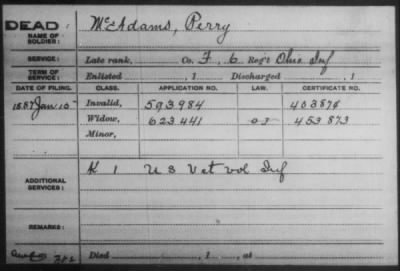 DEAD
McAdams, Perry
NAME OF SOLDIER:
SERVICE: Late rank, Co. F, 6 Reg't Ohio Inf
TERM OF SERVICE: Enlisted , 1 Discharged , 1
DATE OF FILING. CLASS. APPLICATION NO. LAW. CERTIFICATE NO.
1887 Jan 10 Invalid, 593984 403878
Widow, 623441 453873
Minor,
ADDITIONAL SERVICES: K 1 U S Vet Vol Inf
REMARKS:
Died , 1 , at